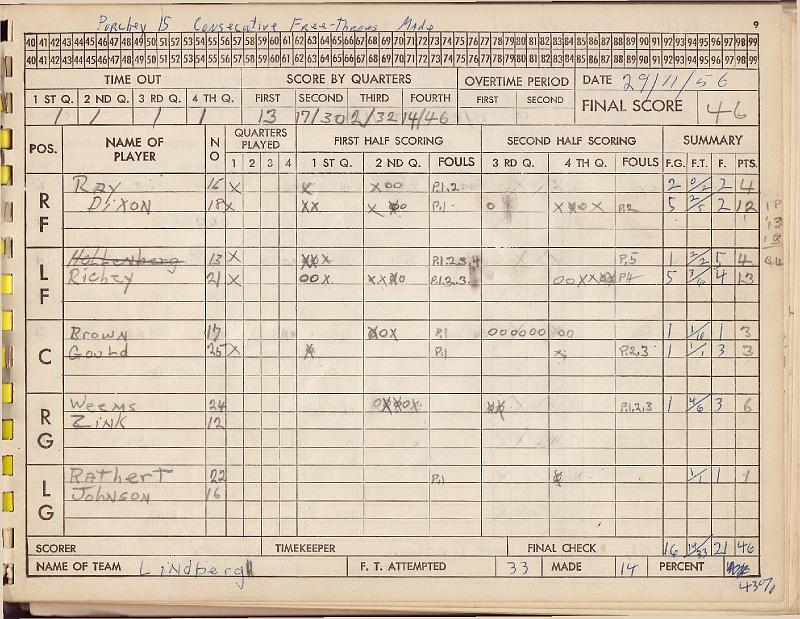 Porchey 15 Consecutive Free-throws Made
9
40 41 42 43 44 45 46 47 48 49 50 51 52 53 54 55 56 57 58 59 60 61 62 63 64 65 66 67 68 69 70 71 72 73 74 75 76 77 78 79 80 81 82 83 84 85 86 87 88 89 90 91 92 93 94 95 96 97 98 99
40 41 42 43 44 45 46 47 48 49 50 51 52 53 54 55 56 57 58 59 60 61 62 63 64 65 66 67 68 69 70 71 72 73 74 75 76 77 78 79 80 81 82 83 84 85 86 87 88 89 90 91 92 93 94 95 96 97 98 99
TIME OUT SCORE BY QUARTERS OVERTIME PERIOD DATE 29/11/56
1 ST Q. 2 ND Q. 3 RD Q. 4 TH Q. FIRST SECOND THIRD FOURTH FIRST SECOND FINAL SCORE 46
1 1 1 1 13 17/30 2/32 14/46
POS. NAME OF PLAYER NO QUARTERS PLAYED FIRST HALF SCORING SECOND HALF SCORING SUMMARY
1 2 3 4 1 ST Q. 2 ND Q. FOULS 3 RD Q. 4 TH Q. FOULS F.G. F.T. F. PTS.
RF
Ray 15 X X XOO P.1.2 2 0/2 2 4
Dixon 18 X XX P.1 O P.2 5 2/5 2 12
LF
Hollenberg 13 X P.1.2.3.4 P.5 1 2/2 5 4
Richey 21 X OOX P.1.2.3. P4 5 3/6 4 13
C
Brown 17 P.1 OOOOOO OO 1 1/10 1 3
Gould 25 X P.1 P.2.3 1 1/1 3 3
RG
Weems 24 P.1.2.3 1 4/6 3 6
Zink 12
LG
Rathert 22 P.1 1/1 1 1
Johnson 16
SCORER TIMEKEEPER FINAL CHECK 16 14/33 21 46
NAME OF TEAM Lindbergh F. T. ATTEMPTED 33 MADE 14 PERCENT
43%